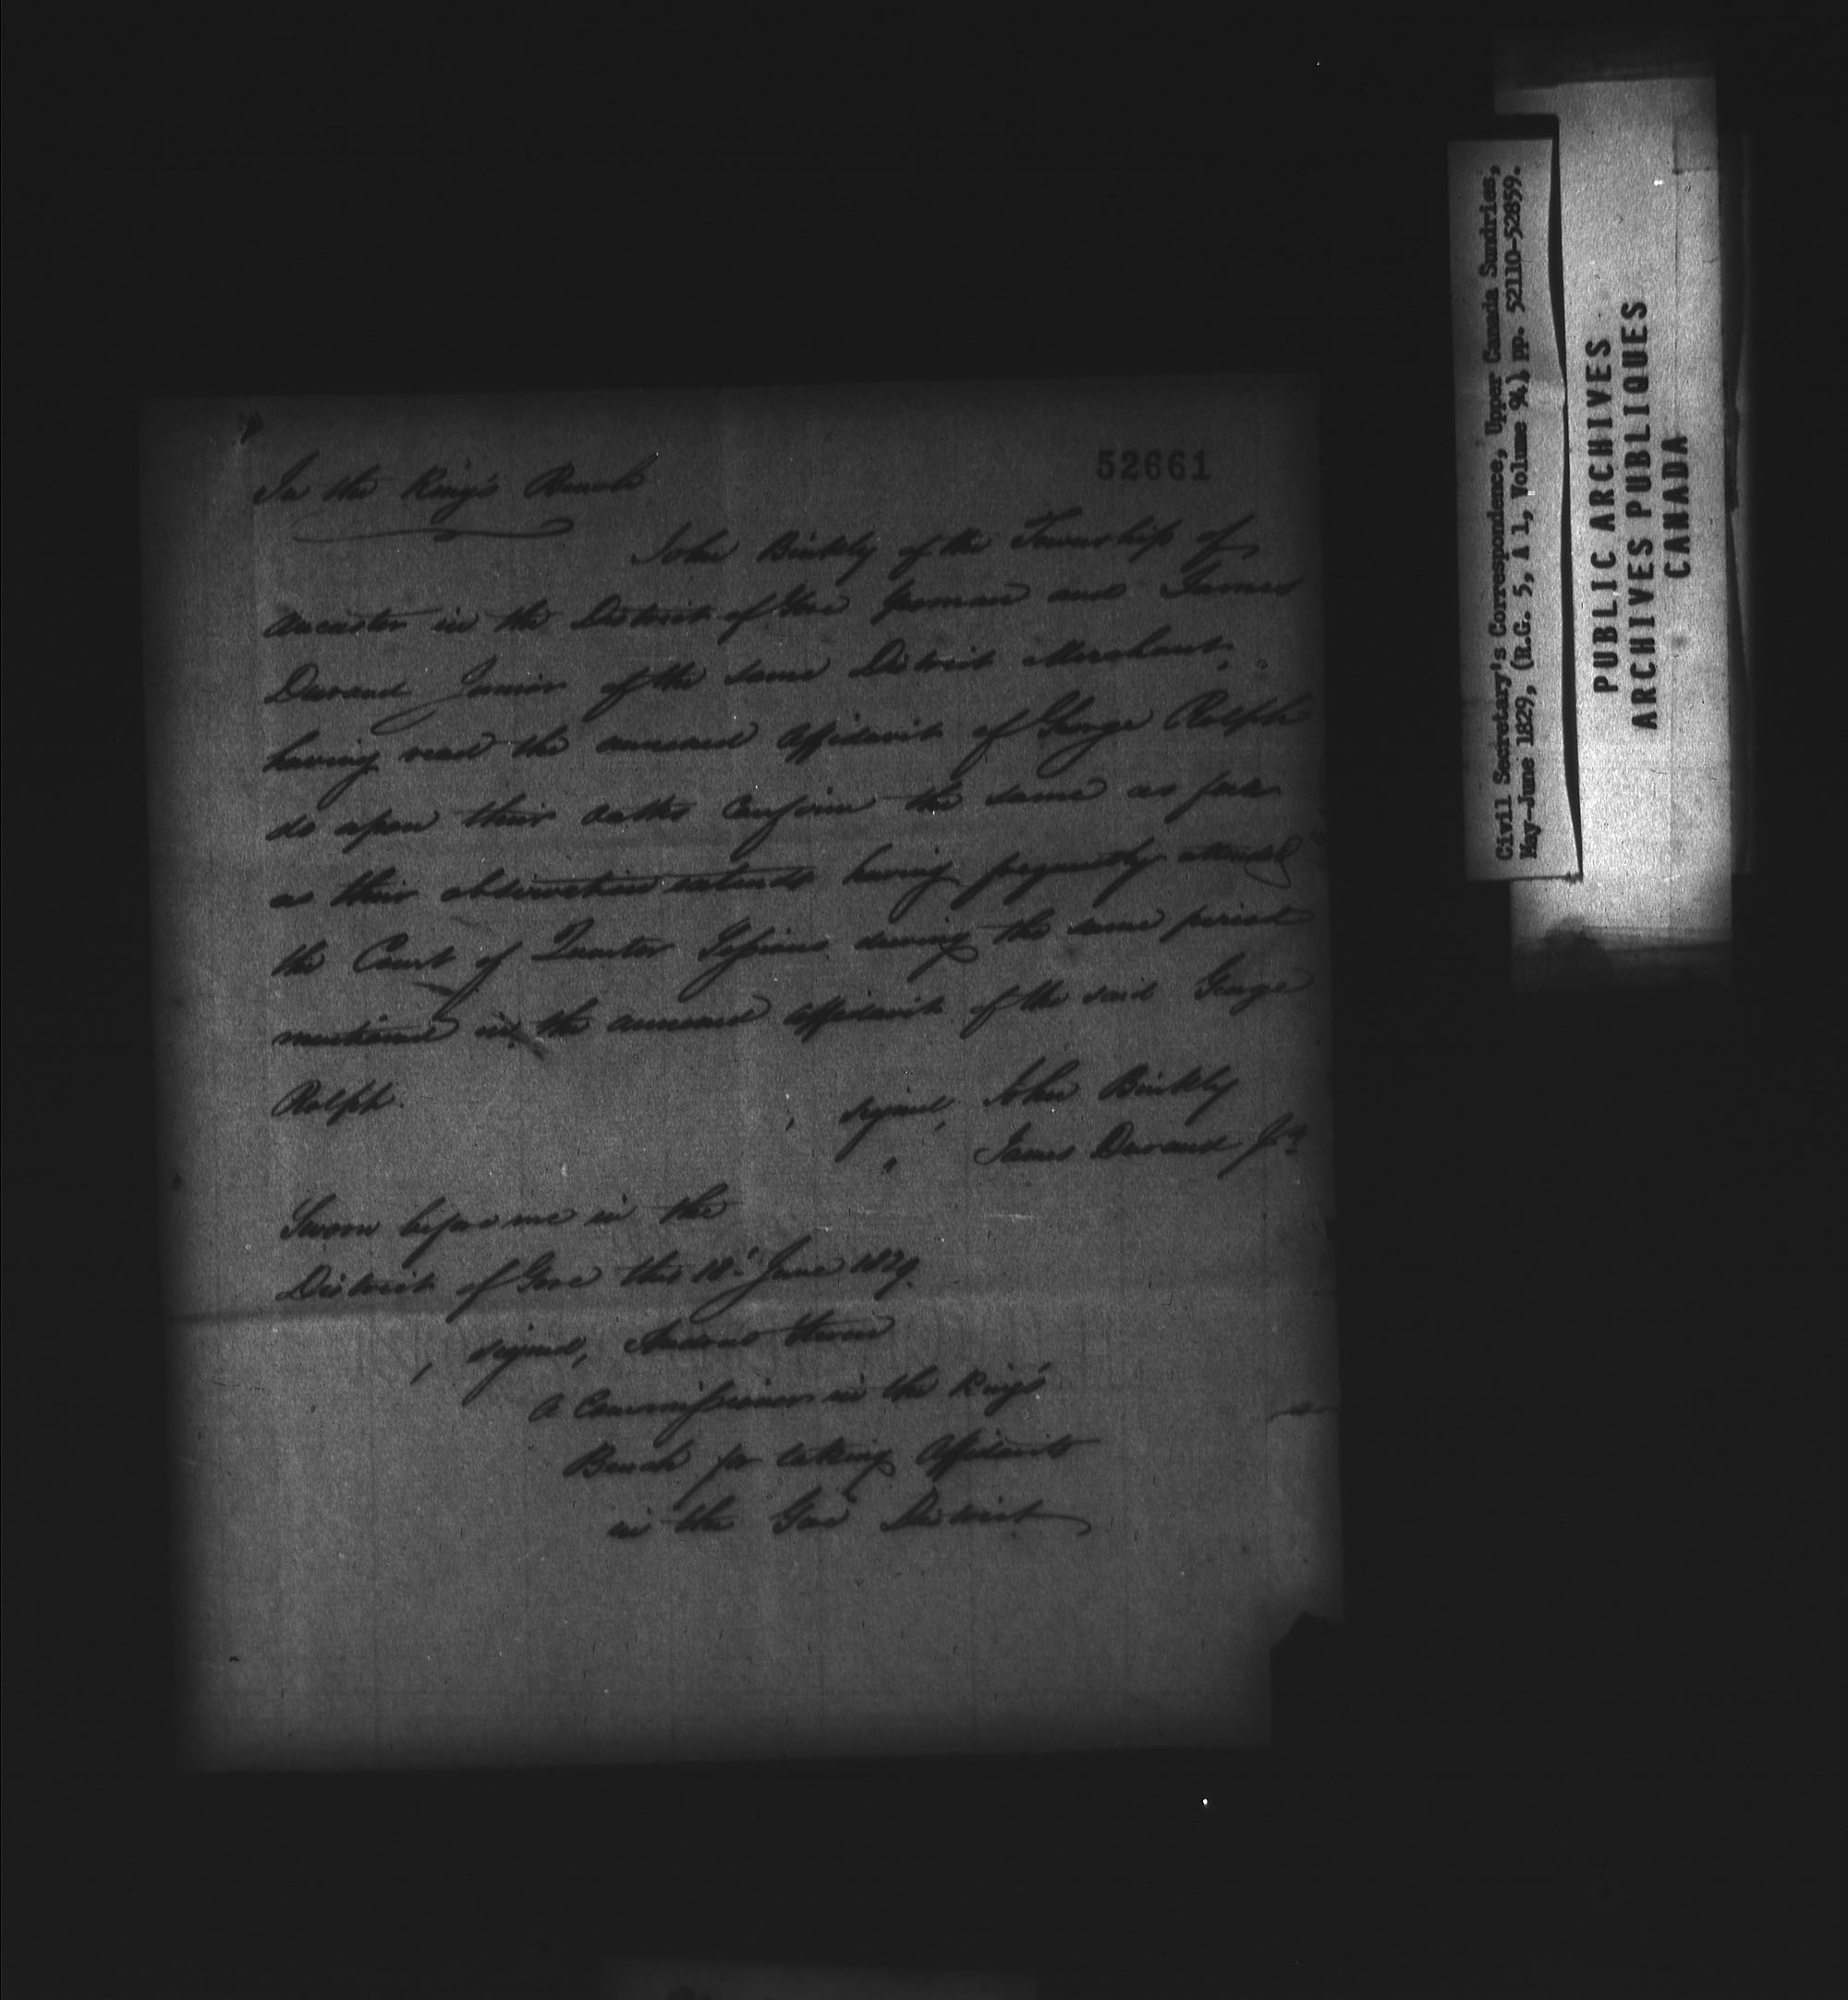 52661
In the King's Bench
John Binkly of the Township of
Ancaster in the District of Gore Yeoman and James
Durand Junior of the same District Merchant,
having read the annexed Affidavit of George Rolph
do upon their oaths confirm the same as far
as their observation extends having frequently attended
the Court of Quarter Sessions during the same period
mentioned in the annexed Affidavit of the said George
Rolph.
, signed, John Binkly
" James Durand Jr.
Sworn before me in the
District of Gore this 18t June 1829.
, signed, Andrew
A Commissioner in the King's
Bench for taking Affidavits
in the Gore District
Civil Secretary's Correspondence, Upper Canada Sundries,
May-June 1829, (R.G. 5, A 1, Volume 94), pp. 52110-52859.
PUBLIC ARCHIVES
ARCHIVES PUBLIQUES
CANADA